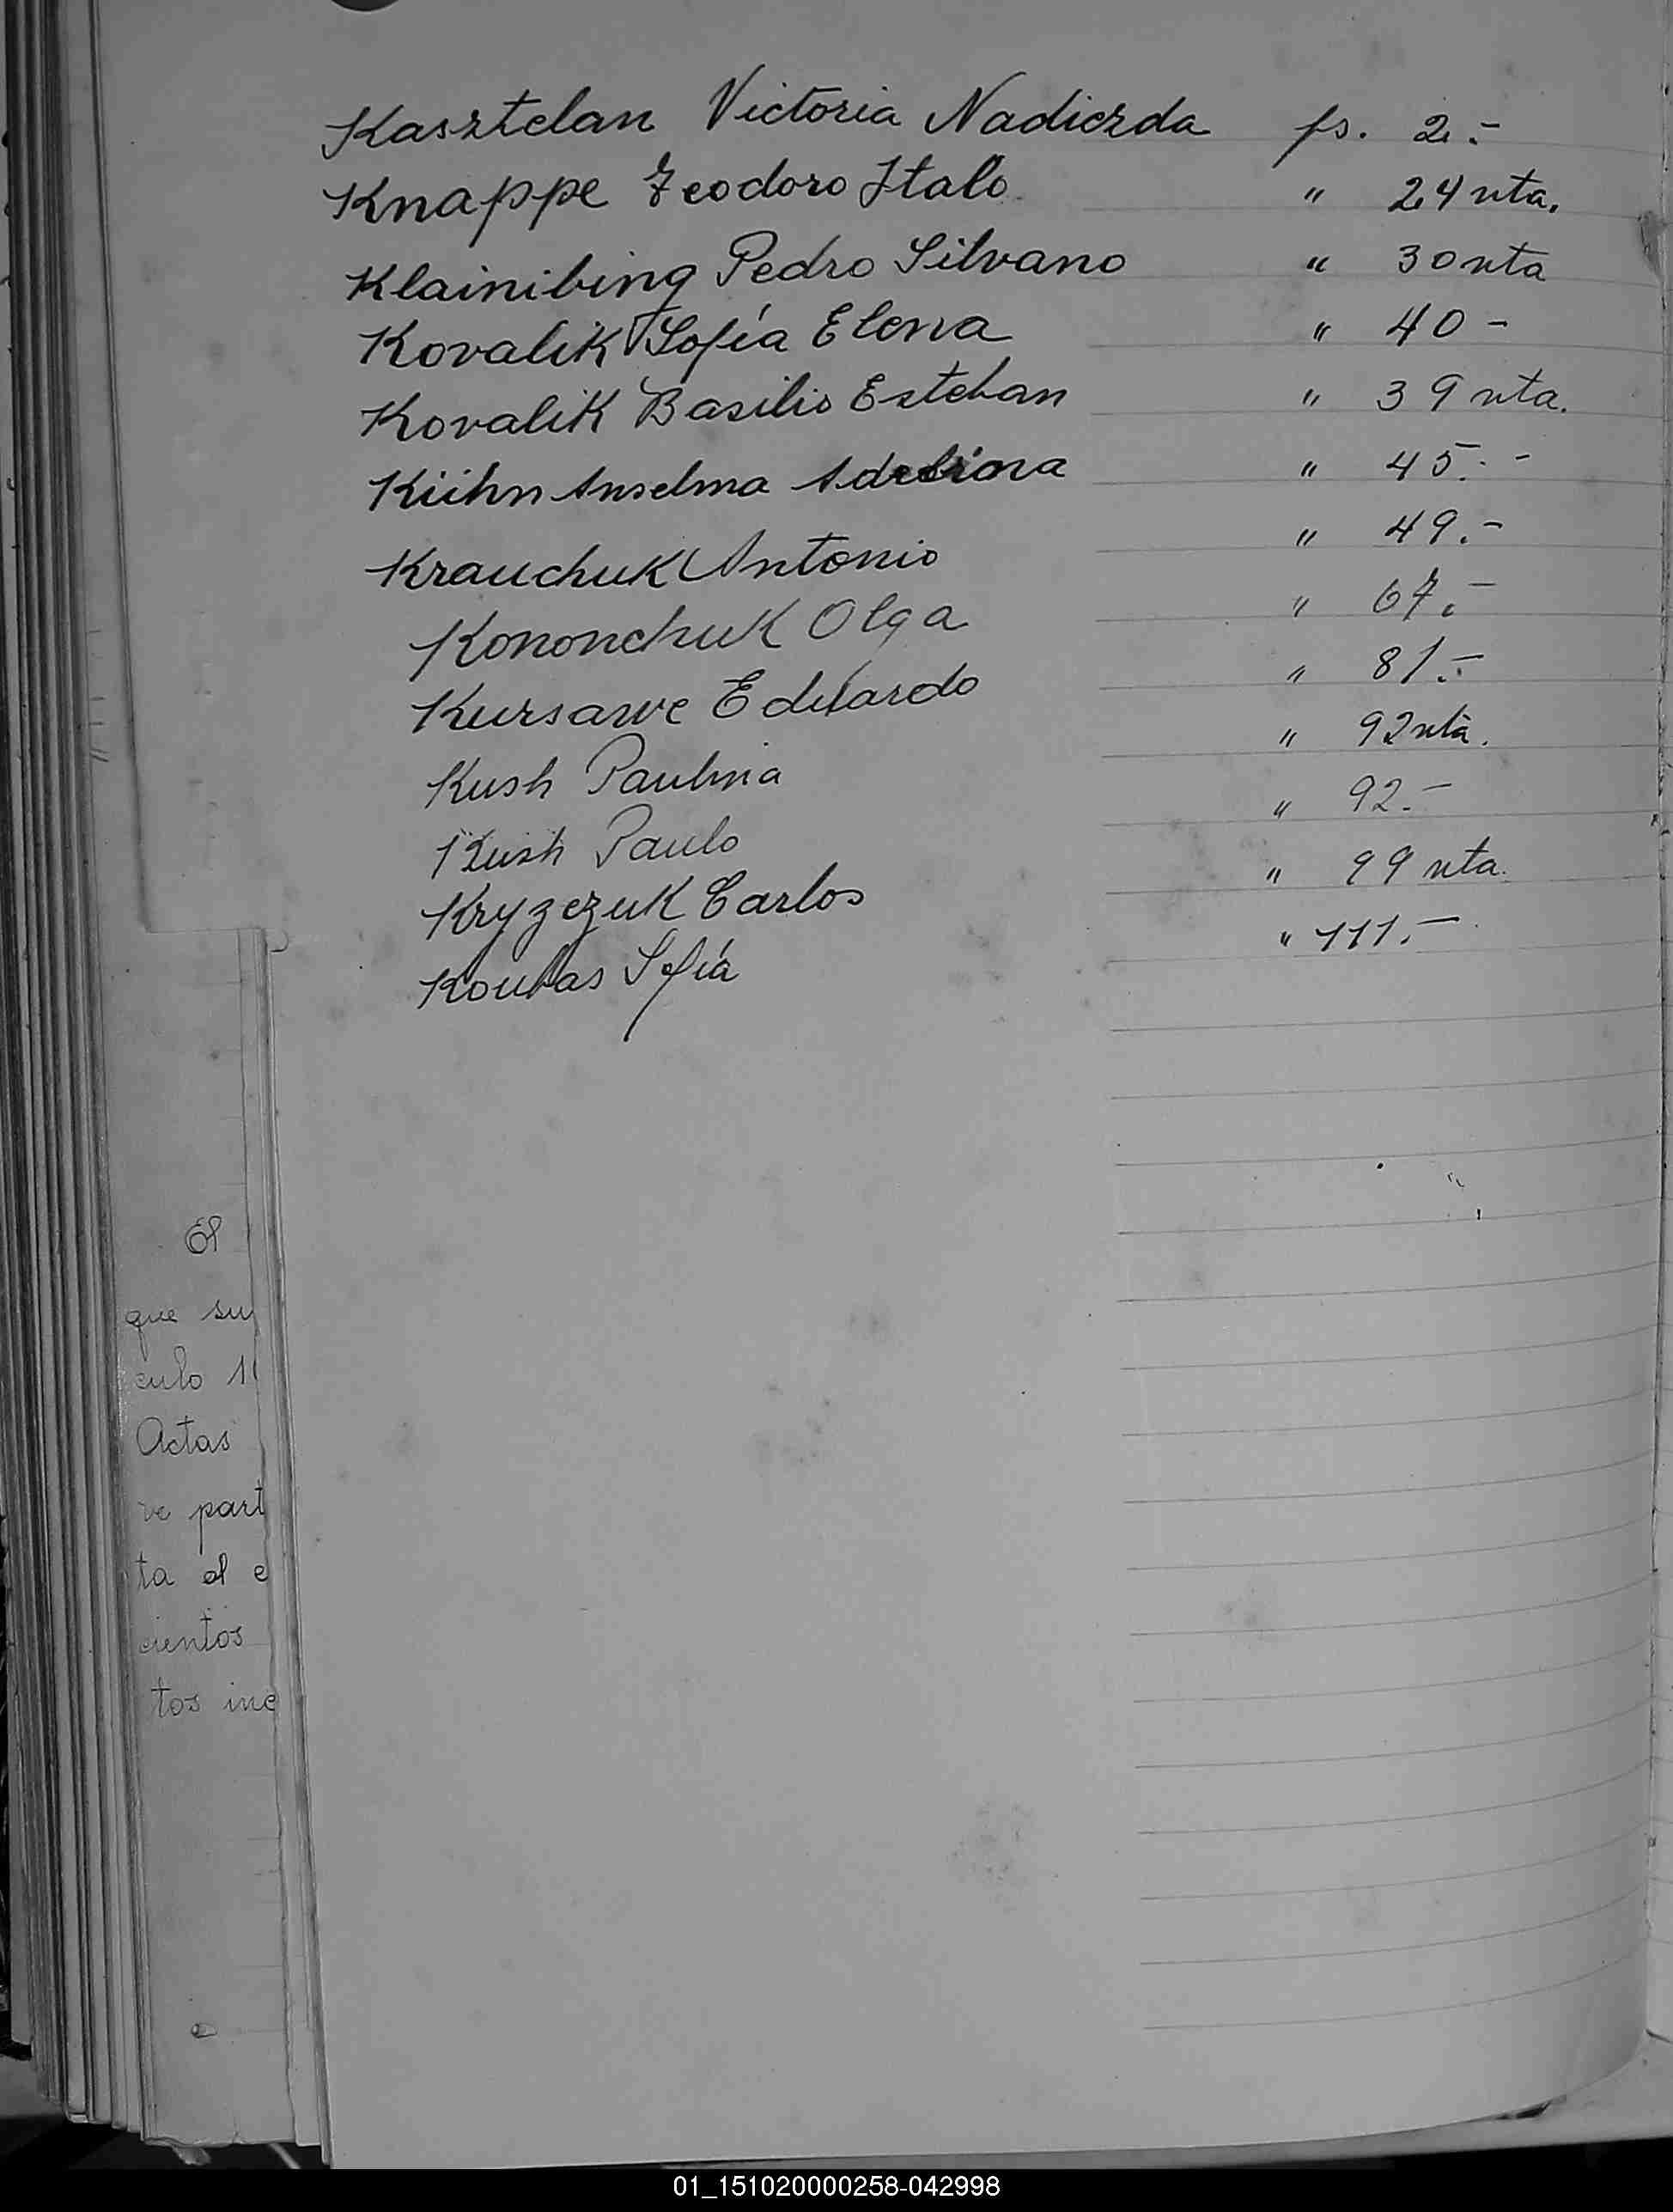 Kasztelan Victoria Nadiezda fs. 2.-
Knappe Teodoro Italo " 24 vta.
Klainibing Pedro Silvano " 30 vta
Kovalik Sofía Elena " 40 -
Kovalik Basilio Esteban " 39 vta.
Kühn Anselma " 45.-
Krauchuk Antonio " 49.-
Kononchuk Olga " 67.-
Kursawe Eduardo " 81.-
Kush Paulina " 92 vta.
Kush Paulo " 92.-
Kryzezuk Carlos " 99 vta.
Sofía " 111.-
El
que su
culo 1
Actas
ve part
ta al e
cientos
tos ine
01_151020000258-042998